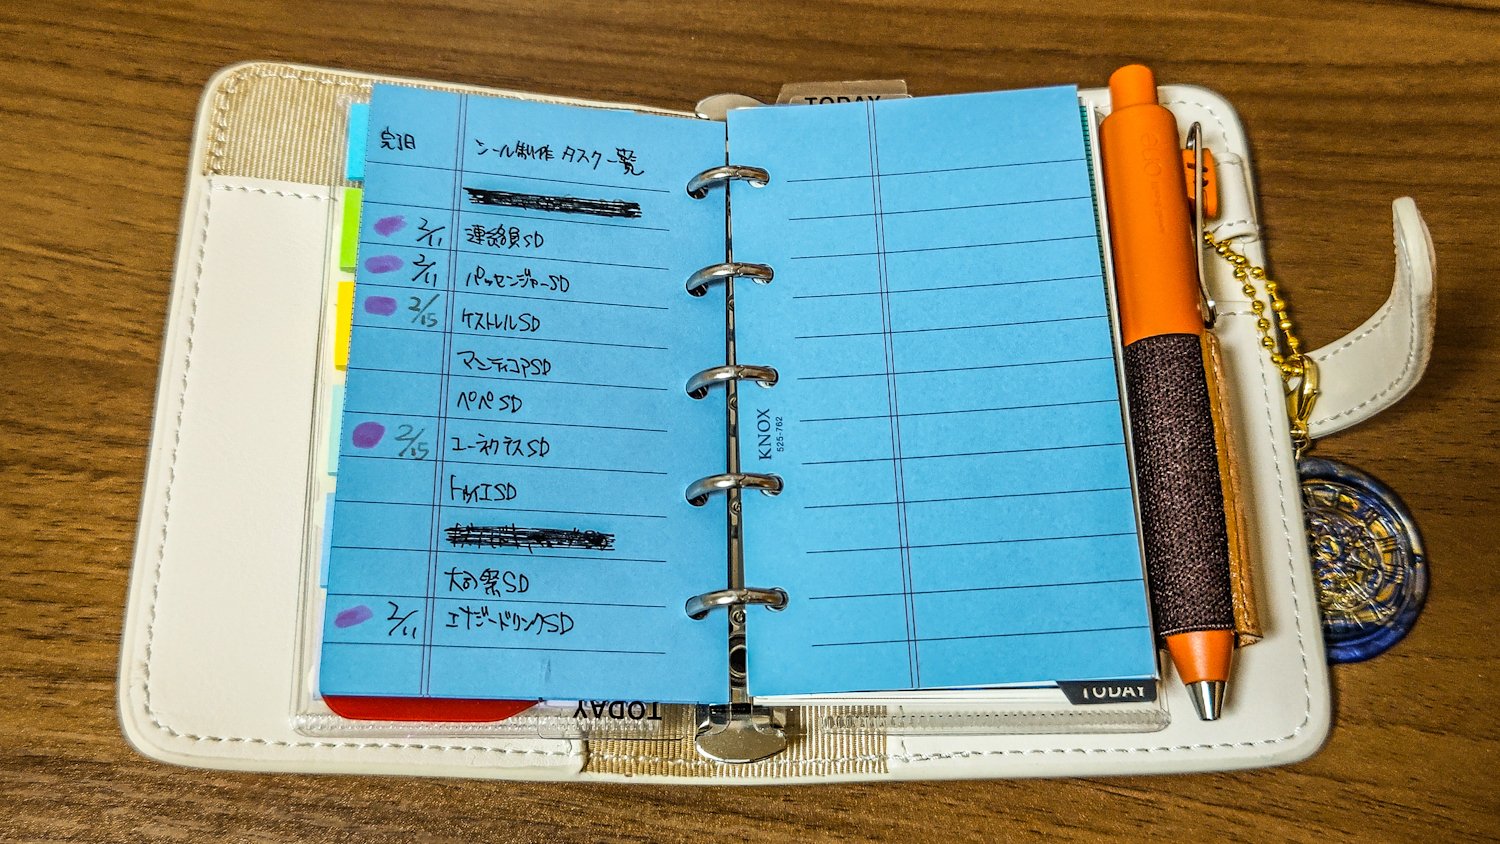 TODAY
完了日 シール制作 タスク一覧
2/11 連絡員SD
2/11 パッセンジャーSD
2/15 ケストレルSD
マンティコアSD
ペペSD
2/15 ユーネクテスSD
トゥイエSD
大司祭SD
2/11 エナジードリンクSD
KNOX
525-762
TODAY
TODAY
one